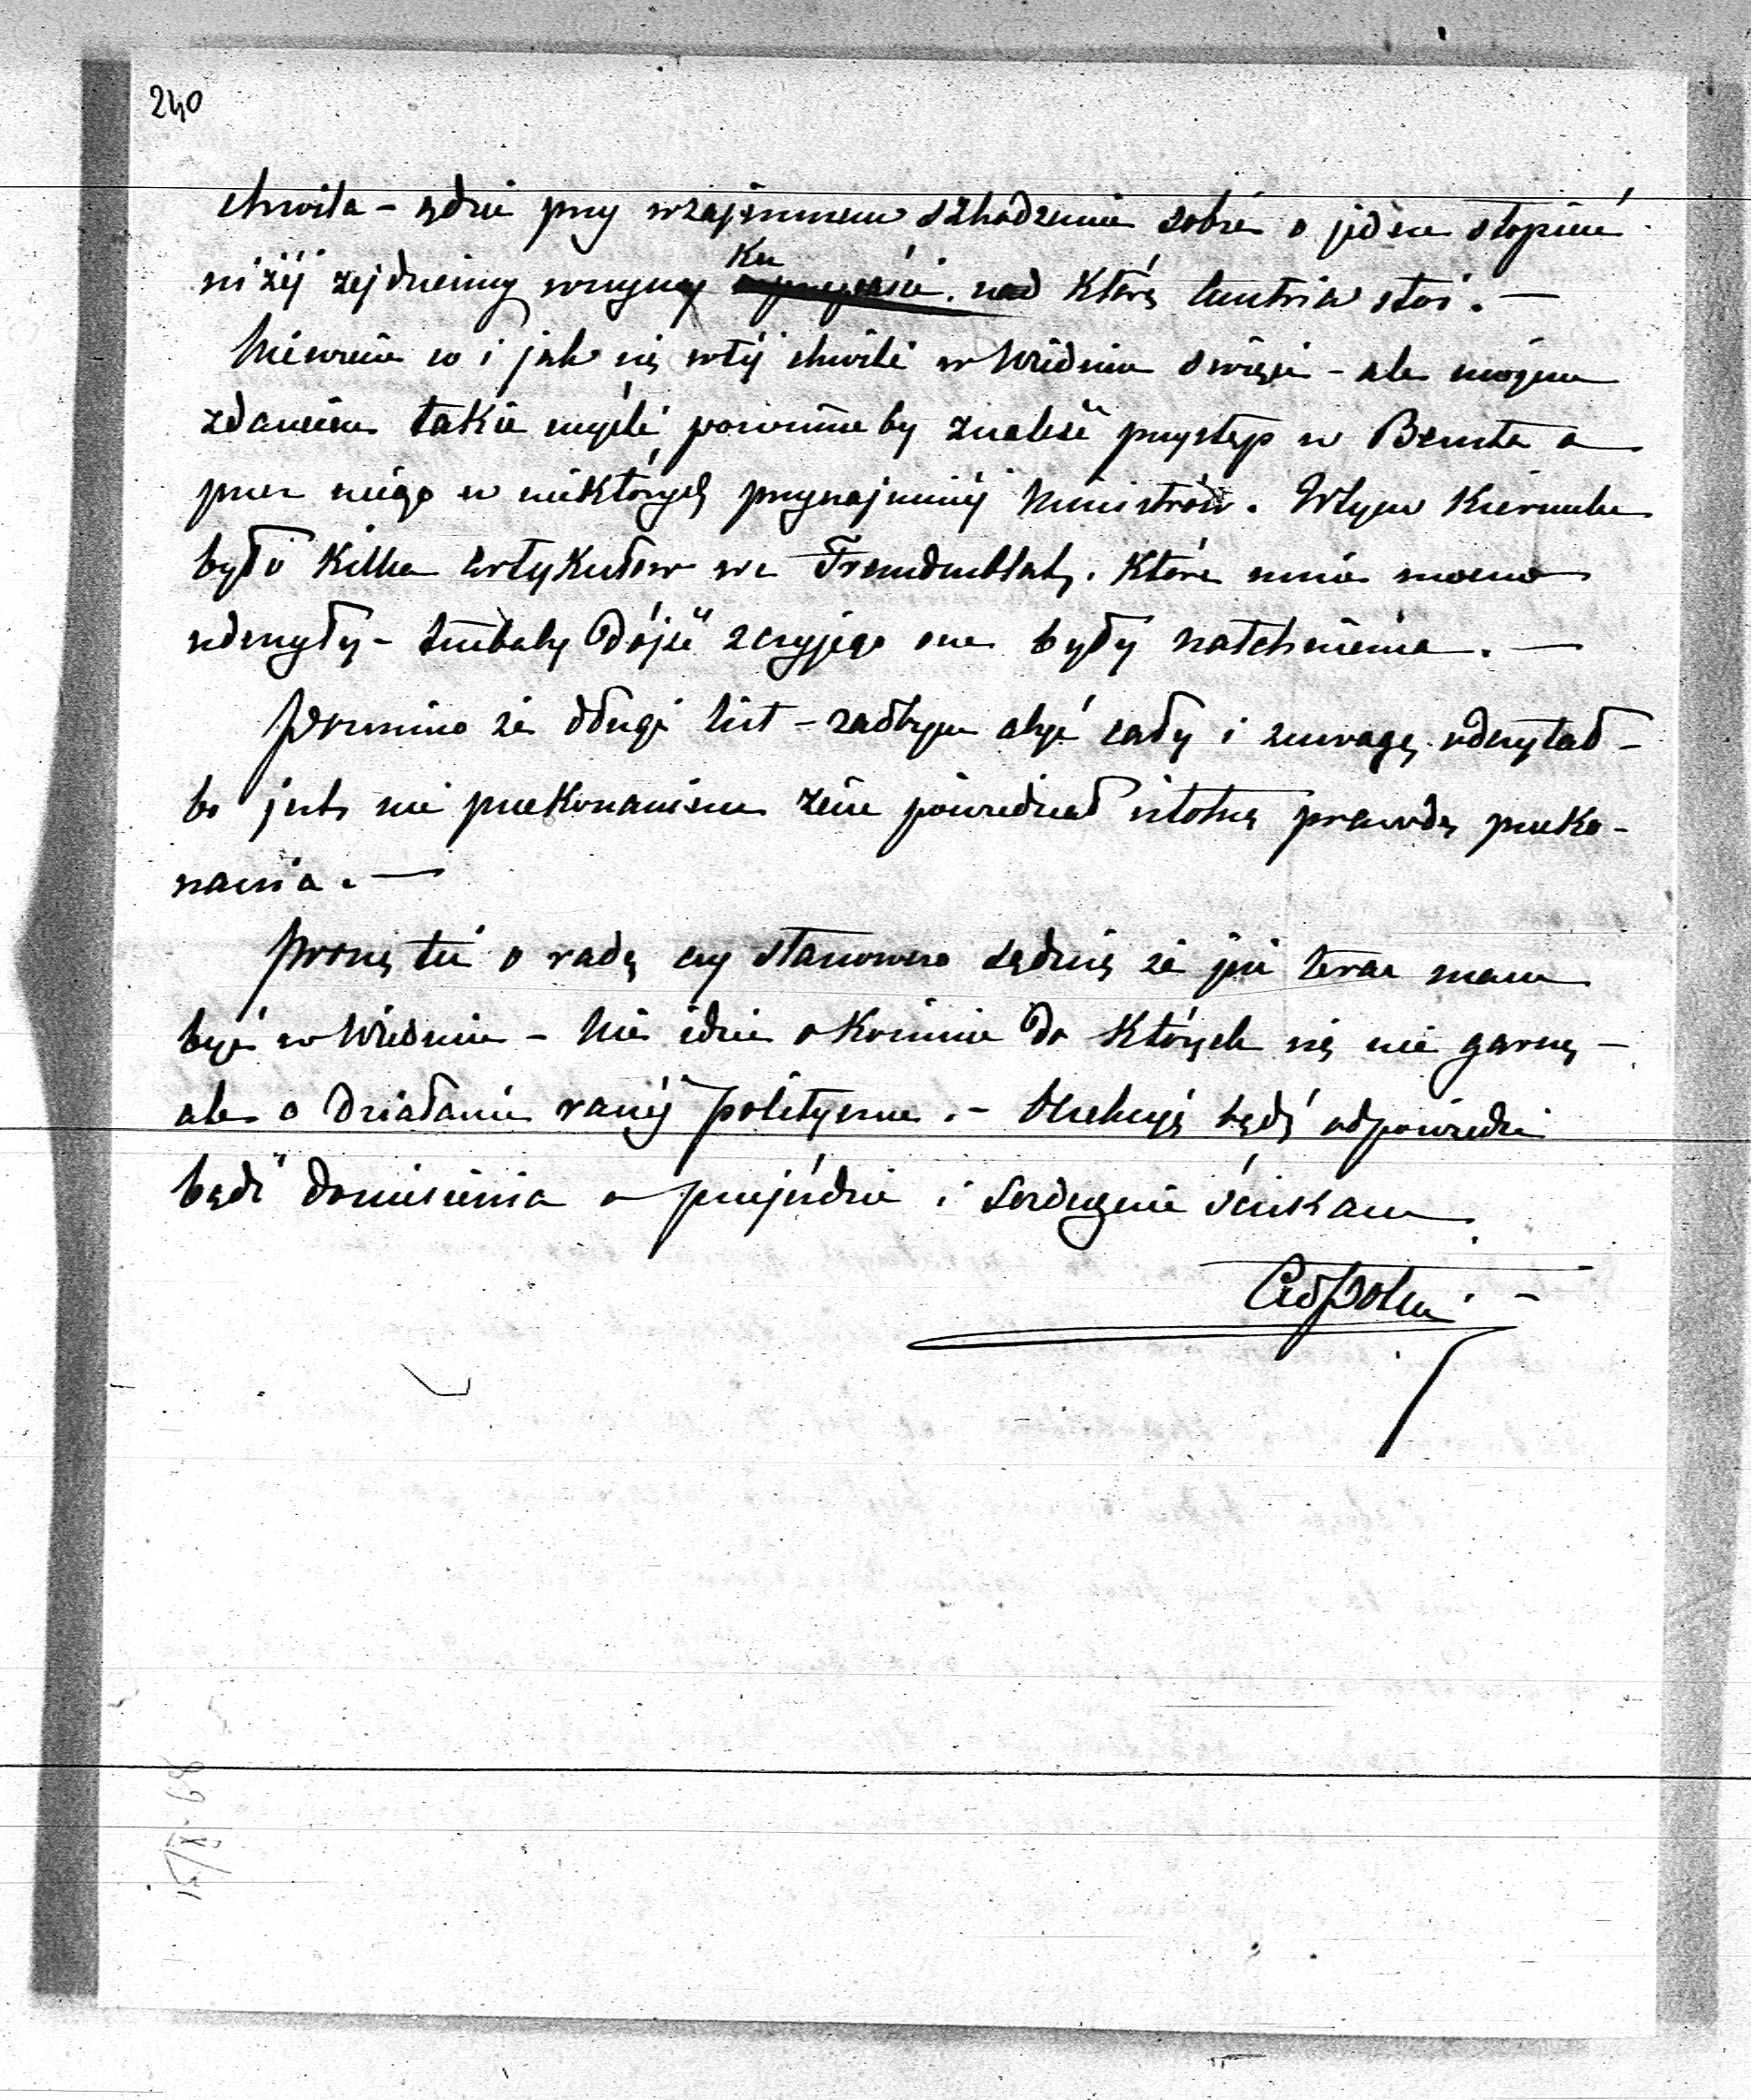 240
chwila – gdzie przy wzajemnem szkodzeniu sobie o jeden stopień
niżéj zejdziemy wszyscy ku nad którą Austria stoi. —
Nie wiem co i jak się w téj chwili w Wiedniu święci – ale mojem
zdaniem takie myśli powinne by znaleść przystęp w Beuście a
przez niego w niektórych przynajmniéj Ministrów. W tym kierunku
było kilka artykułów we Fremdenblatt, które mnie mocno
uderzyły – trzebaby dójść z czyjego one były natchnienia. —
Pomimo że długi list – radbym abyś cały i z uwagą odczytał –
bo jest mi przekonaniem żem powiedział istotną prawdę przeko-
nania. —
Proszę też o radę czy stanowczo sądzisz że już teraz mam
być w Wiedniu – Nie idzie o komisie do których się nie garnę –
ale o działanie raczéj polityczne. – Oczekuję bądź odpowiedzi
bądź doniesienia o przyjeździe i serdecznie ściskam
15/X 69